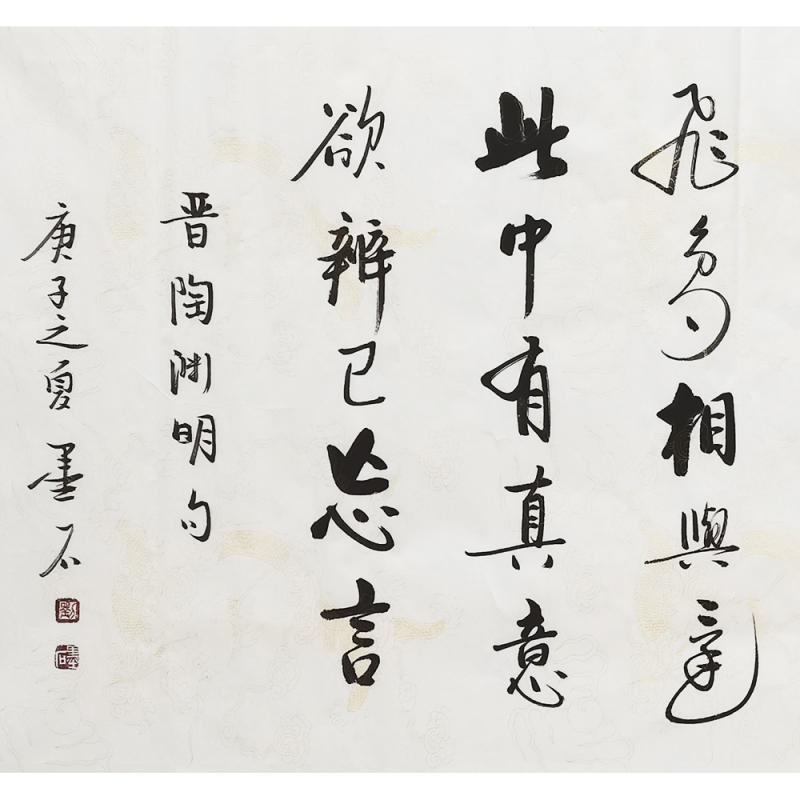 飛鳥相與還
此中有真意
欲辨已忘言
晋陶渊明句
庚子之夏墨石
劉
墨石